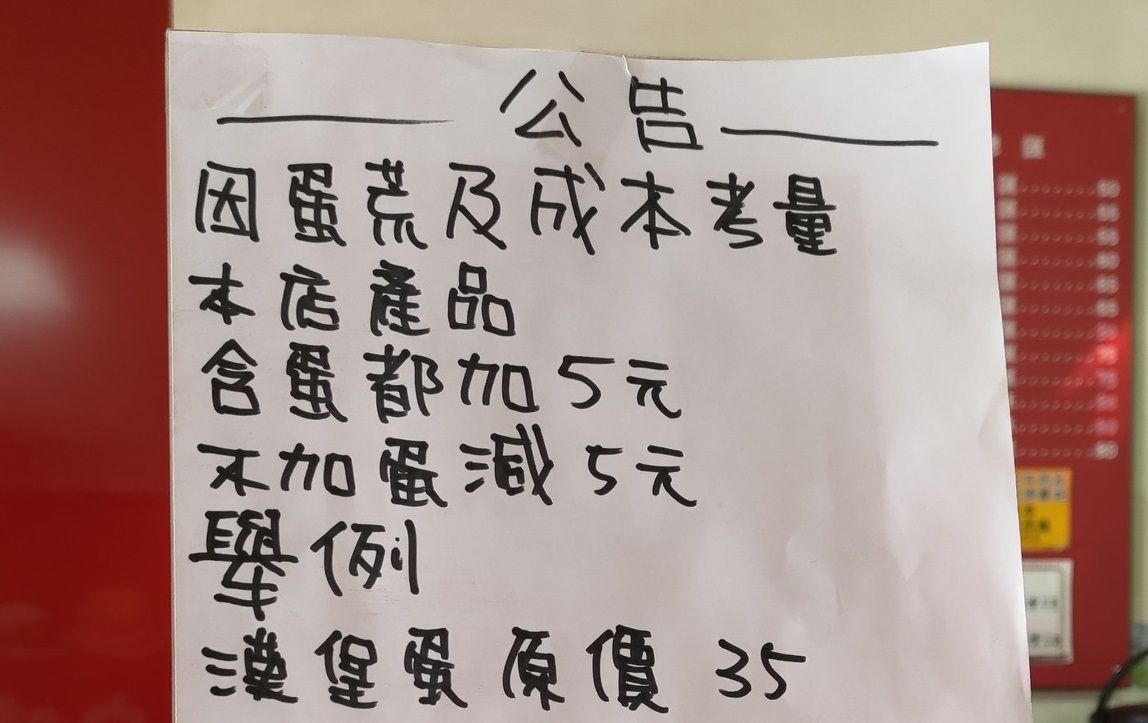 公告
因蛋荒及成本考量
本店產品
含蛋都加5元
不加蛋減5元
舉例
漢堡蛋原價 35